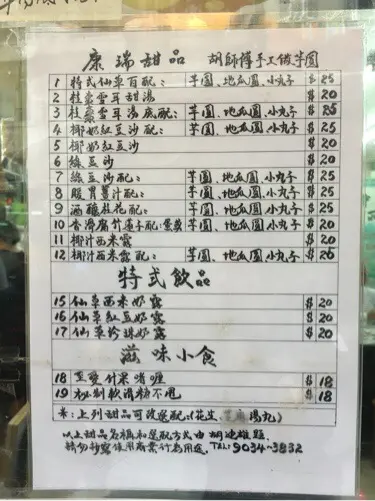 康瑞甜品 胡師傅手工做芋圓
1 特式仙草百配: 芋圓、地瓜圓、小丸子 $25
2 桂氣雪耳甜湯 $20
3 桂氣雪耳湯底配: 芋圓、地瓜圓、小丸子 $25
4 椰奶紅豆沙配: 芋圓、地瓜圓、小丸子 $25
5 椰奶紅豆沙 $20
6 綠豆沙 $20
7 綠豆沙配: 芋圓、地瓜圓、小丸子 $25
8 暖胃薑汁配: 芋圓、地瓜圓、小丸子 $25
9 酒釀桂花配: 芋圓、地瓜圓、小丸子 $25
10 香滑腐竹蓮子配: $20
11 椰汁西米露 $20
12 椰汁西米露配: 芋圓、地瓜圓、小丸子 $25
特式飲品
15 仙草西米奶露 $20
16 仙草紅豆奶露 $20
17 仙草珍珠奶露 $20
滋味小食
18 至愛什菓啫喱 $18
19 秘制軟滑糖不甩 $18
*:上列甜品可改選配:(花生、湯丸)
以上甜品名稱和選配方式由胡建雄題.
請勿抄襲使用商業行為用途. TEL:9034-3832